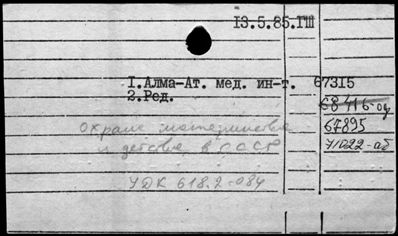 13.5.85.ГШ
1.Алма-Ат. мед. ин-т. 67315
2.Ред.
68416-оу
Охрана материнства 67895
и детства в СССР 71022-аб
УДК 618.2-084